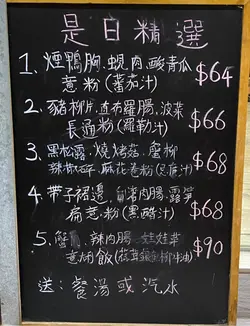 是日精選
1. 煙鴨胸.蜆肉.酸青瓜
意粉(蕃茄汁) $64
2. 豬柳片.直布羅腸.波菜
長通粉(羅勒汁) $66
3. 黑松露.燒烤菇.蜜柳
辣椒 麻花意粉( 汁) $68
4. 帶子裙邊.台灣肉腸.露笋
扁意粉(黑醋汁) $68
5. 蟹 .辣肉腸 娃娃菜
意 飯( 牛油) $90
送:餐湯或汽水